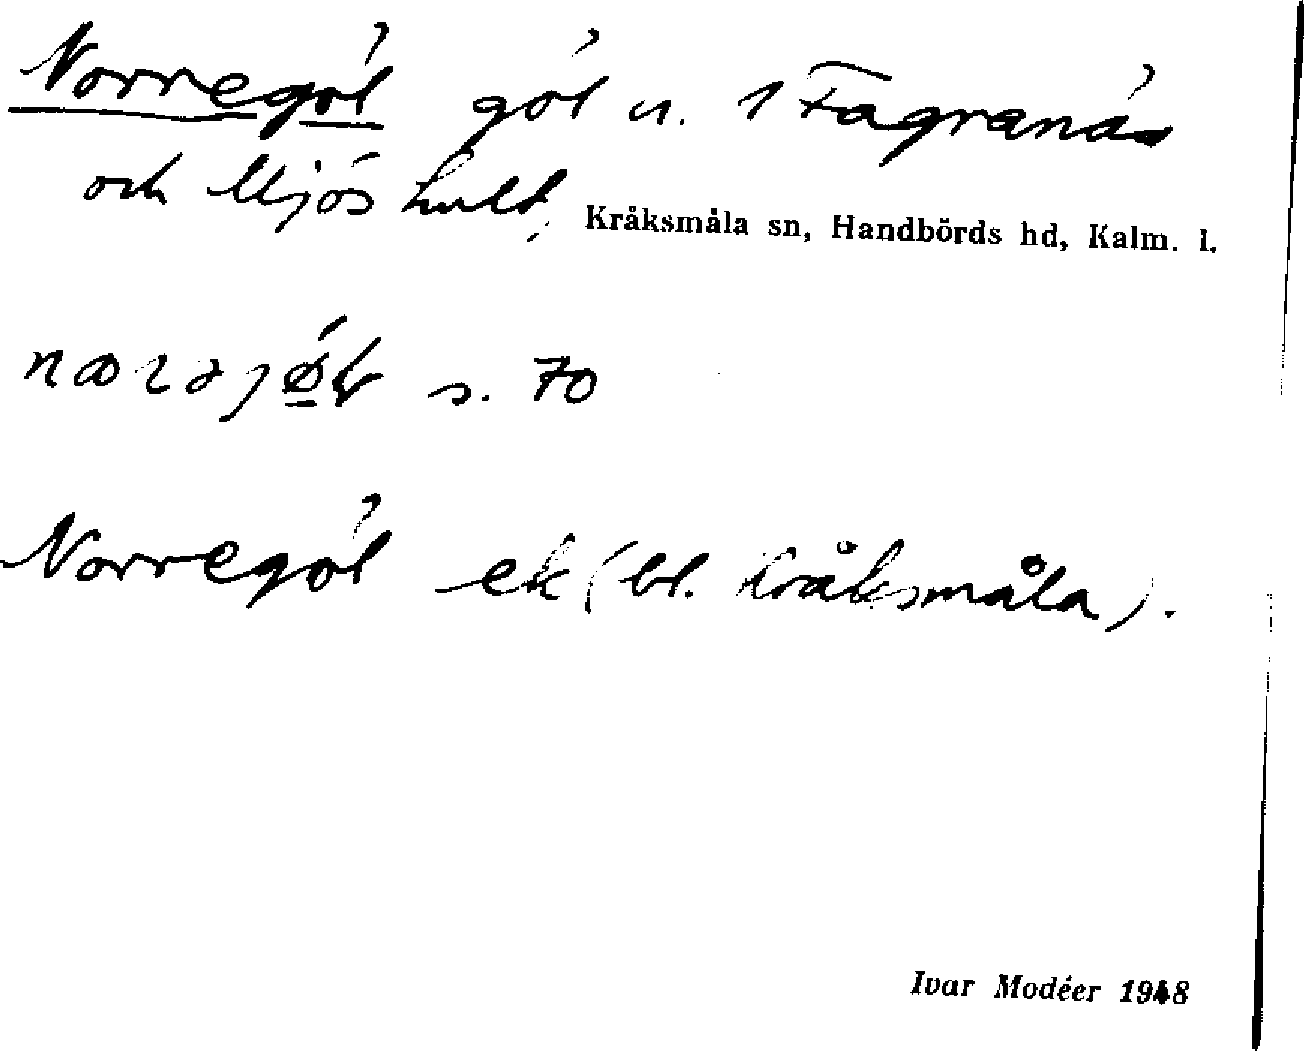 Norregöl göl n. 1 Fagranäs
och Mjöshult,
Kråksmåla sn, Handbörds hd, Kalm. l.
s. 70
Norregöl ek (bl. Kråksmåla).
Ivar Modéer 1948